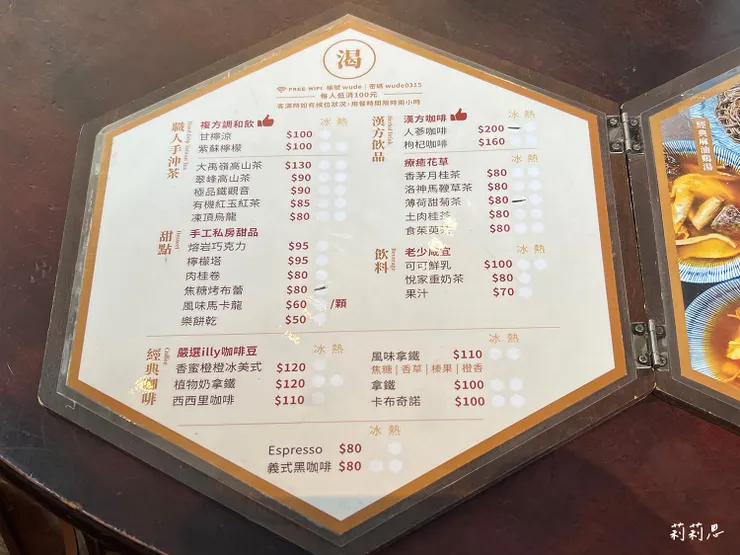 渴
FREE WIFI 帳號 wude | 密碼 wude0315
每人低消100元
客滿時如有候位狀況,用餐時間限時兩小時
職人手沖茶
Hand Drip Artisan Tea
複方調和飲 冰 熱
甘檸涼 $100
紫蘇檸檬 $100
大禹嶺高山茶 $130
翠峰高山茶 $90
極品鐵觀音 $90
有機紅玉紅茶 $85
凍頂烏龍 $80
甜點
Dessert
手工私房甜品
熔岩巧克力 $95
檸檬塔 $95
肉桂卷 $80
焦糖烤布蕾 $80
風味馬卡龍 $60 /顆
樂餅乾 $50
漢方飲品
Herbal Drink
漢方咖啡 冰 熱
人蔘咖啡 $200
枸杞咖啡 $160
療癒花草 冰 熱
香茅月桂茶 $80
洛神馬鞭草茶 $80
薄荷甜菊茶 $80
土肉桂茶 $80
食茱萸茶 $80
飲料
Beverage
老少咸宜 冰 熱
可可鮮乳 $100
悅家重奶茶 $80
果汁 $70
經典咖啡
Coffee
嚴選illy咖啡豆 冰 熱
香蜜橙橙冰美式 $120
植物奶拿鐵 $120
西西里咖啡 $110
冰 熱
風味拿鐵 $110
焦糖 | 香草 | 榛果 | 橙香
拿鐵 $100
卡布奇諾 $100
冰 熱
Espresso $80
義式黑咖啡 $80
經典麻油雞湯
莉莉恩